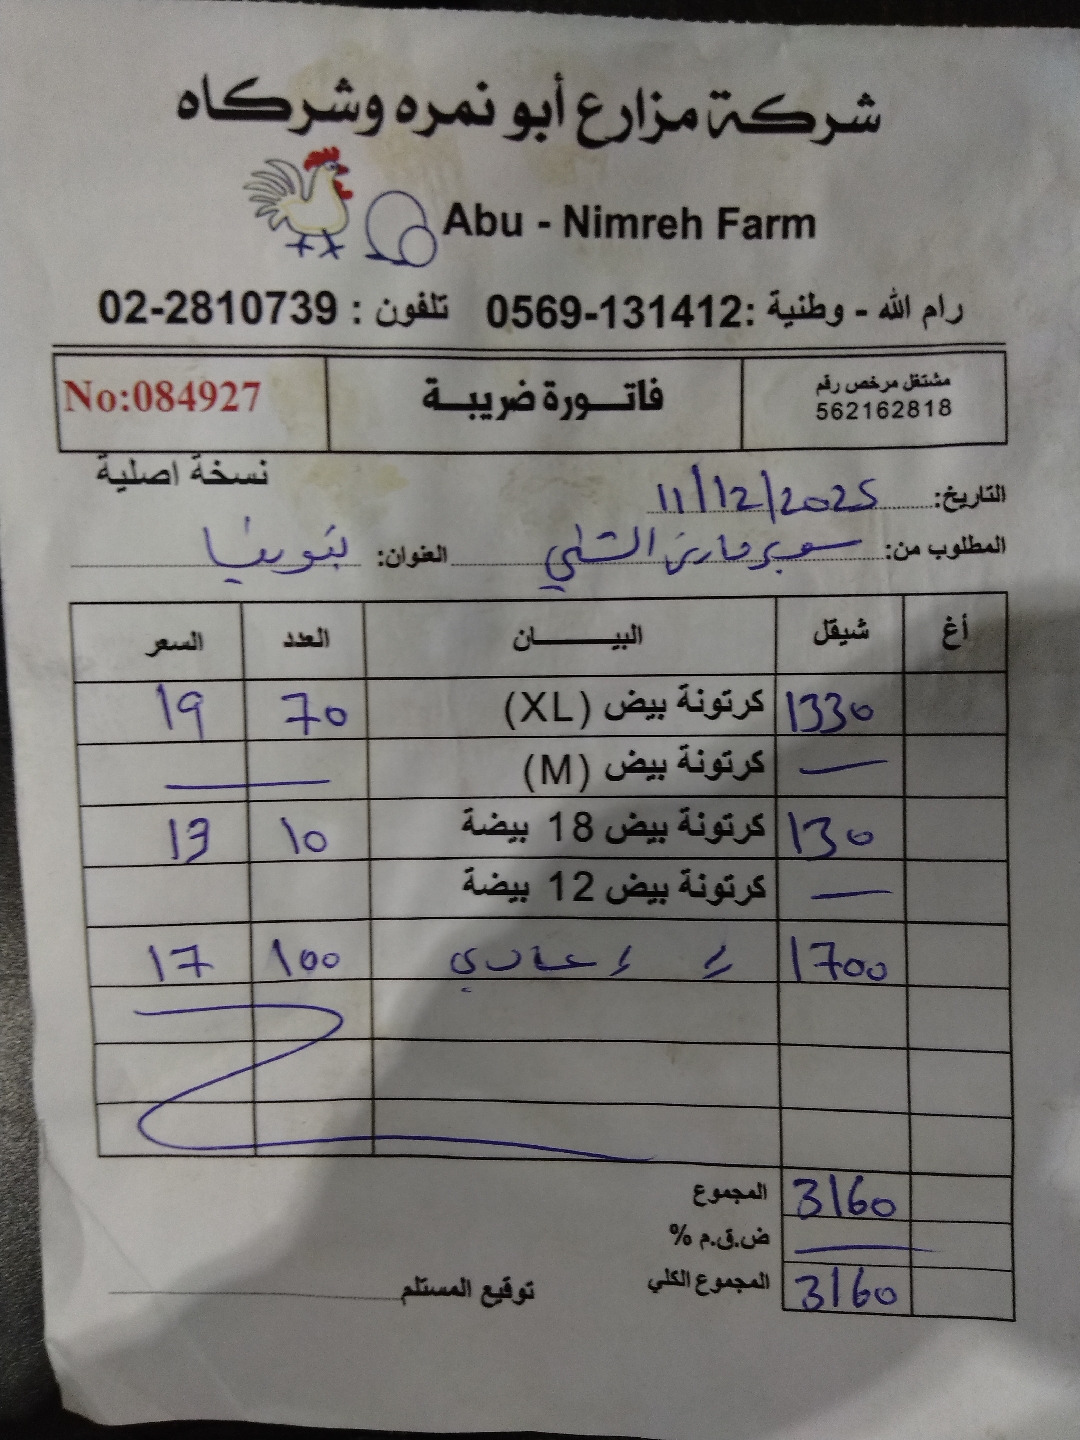 شركة مزارع أبو نمره وشركاه
Abu - Nimreh Farm
رام الله - وطنية :0569-131412 تلفون : 02-2810739
مشتغل مرخص رقم
562162818
فاتورة ضريبة
No:084927
نسخة اصلية
التاريخ: 11/12/2025
المطلوب من: سوبر ماركت الشلبي العنوان:
أغ شيقل البيان العدد السعر
1330 كرتونة بيض (XL) 70 19
— كرتونة بيض (M) —
130 كرتونة بيض 18 بيضة 10 13
— كرتونة بيض 12 بيضة
1700 عادي 100 17
المجموع 3160
ض.ق.م % —
المجموع الكلي 3160
توقيع المستلم